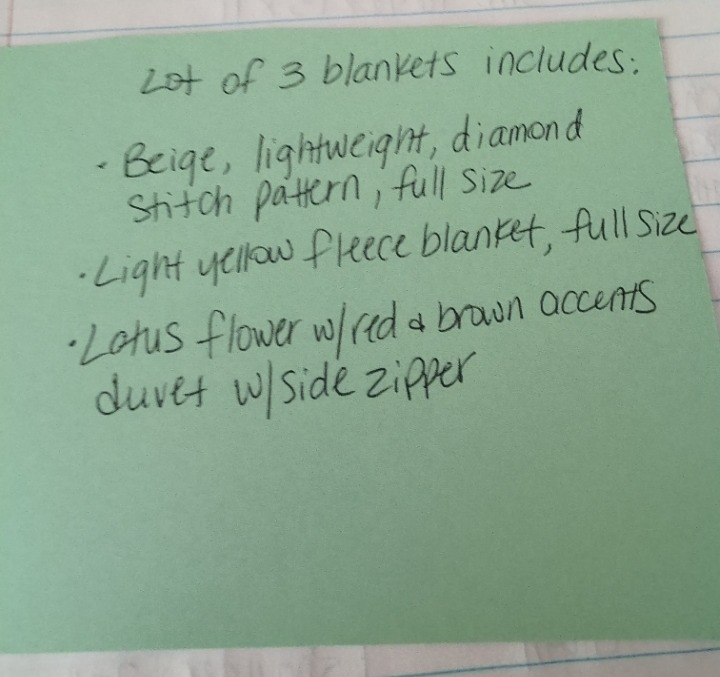 Lot of 3 blankets includes:
· Beige, lightweight, diamond
stitch pattern, full size
· Light yellow fleece blanket, full size
· Lotus flower w/red & brown accents
duvet w/side zipper